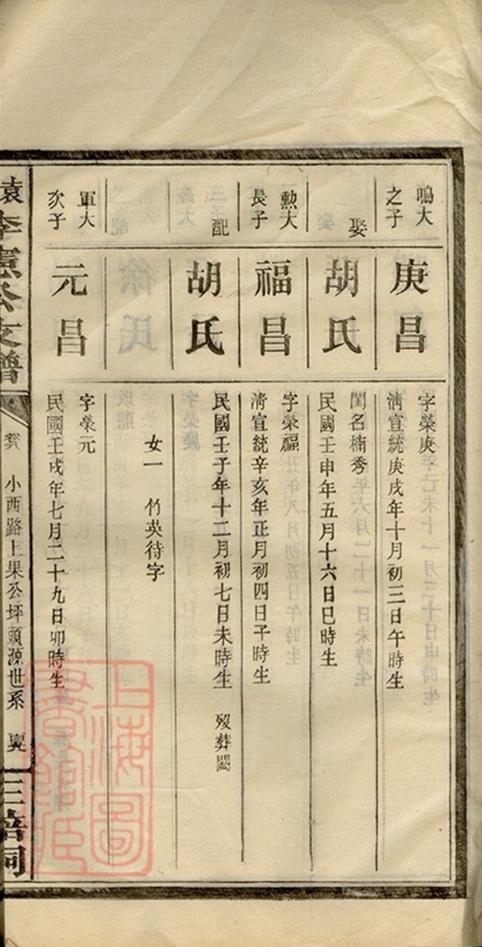 鳴大之子
庚昌
字榮庚
清宣統庚戌年十月初三日午時生
娶
胡氏
閨名楠秀
民國壬申年五月十六日巳時生
勲大長子
福昌
字榮福
清宣統辛亥年正月初四日子時生
配
胡氏
民國壬子年十二月初七日未時生 歿葬闕
女一 竹英待字
軍大次子
元昌
字榮元
民國壬戌年七月二十九日卯時生
公支譜
小西路上果公坪頭源世系
上海圖